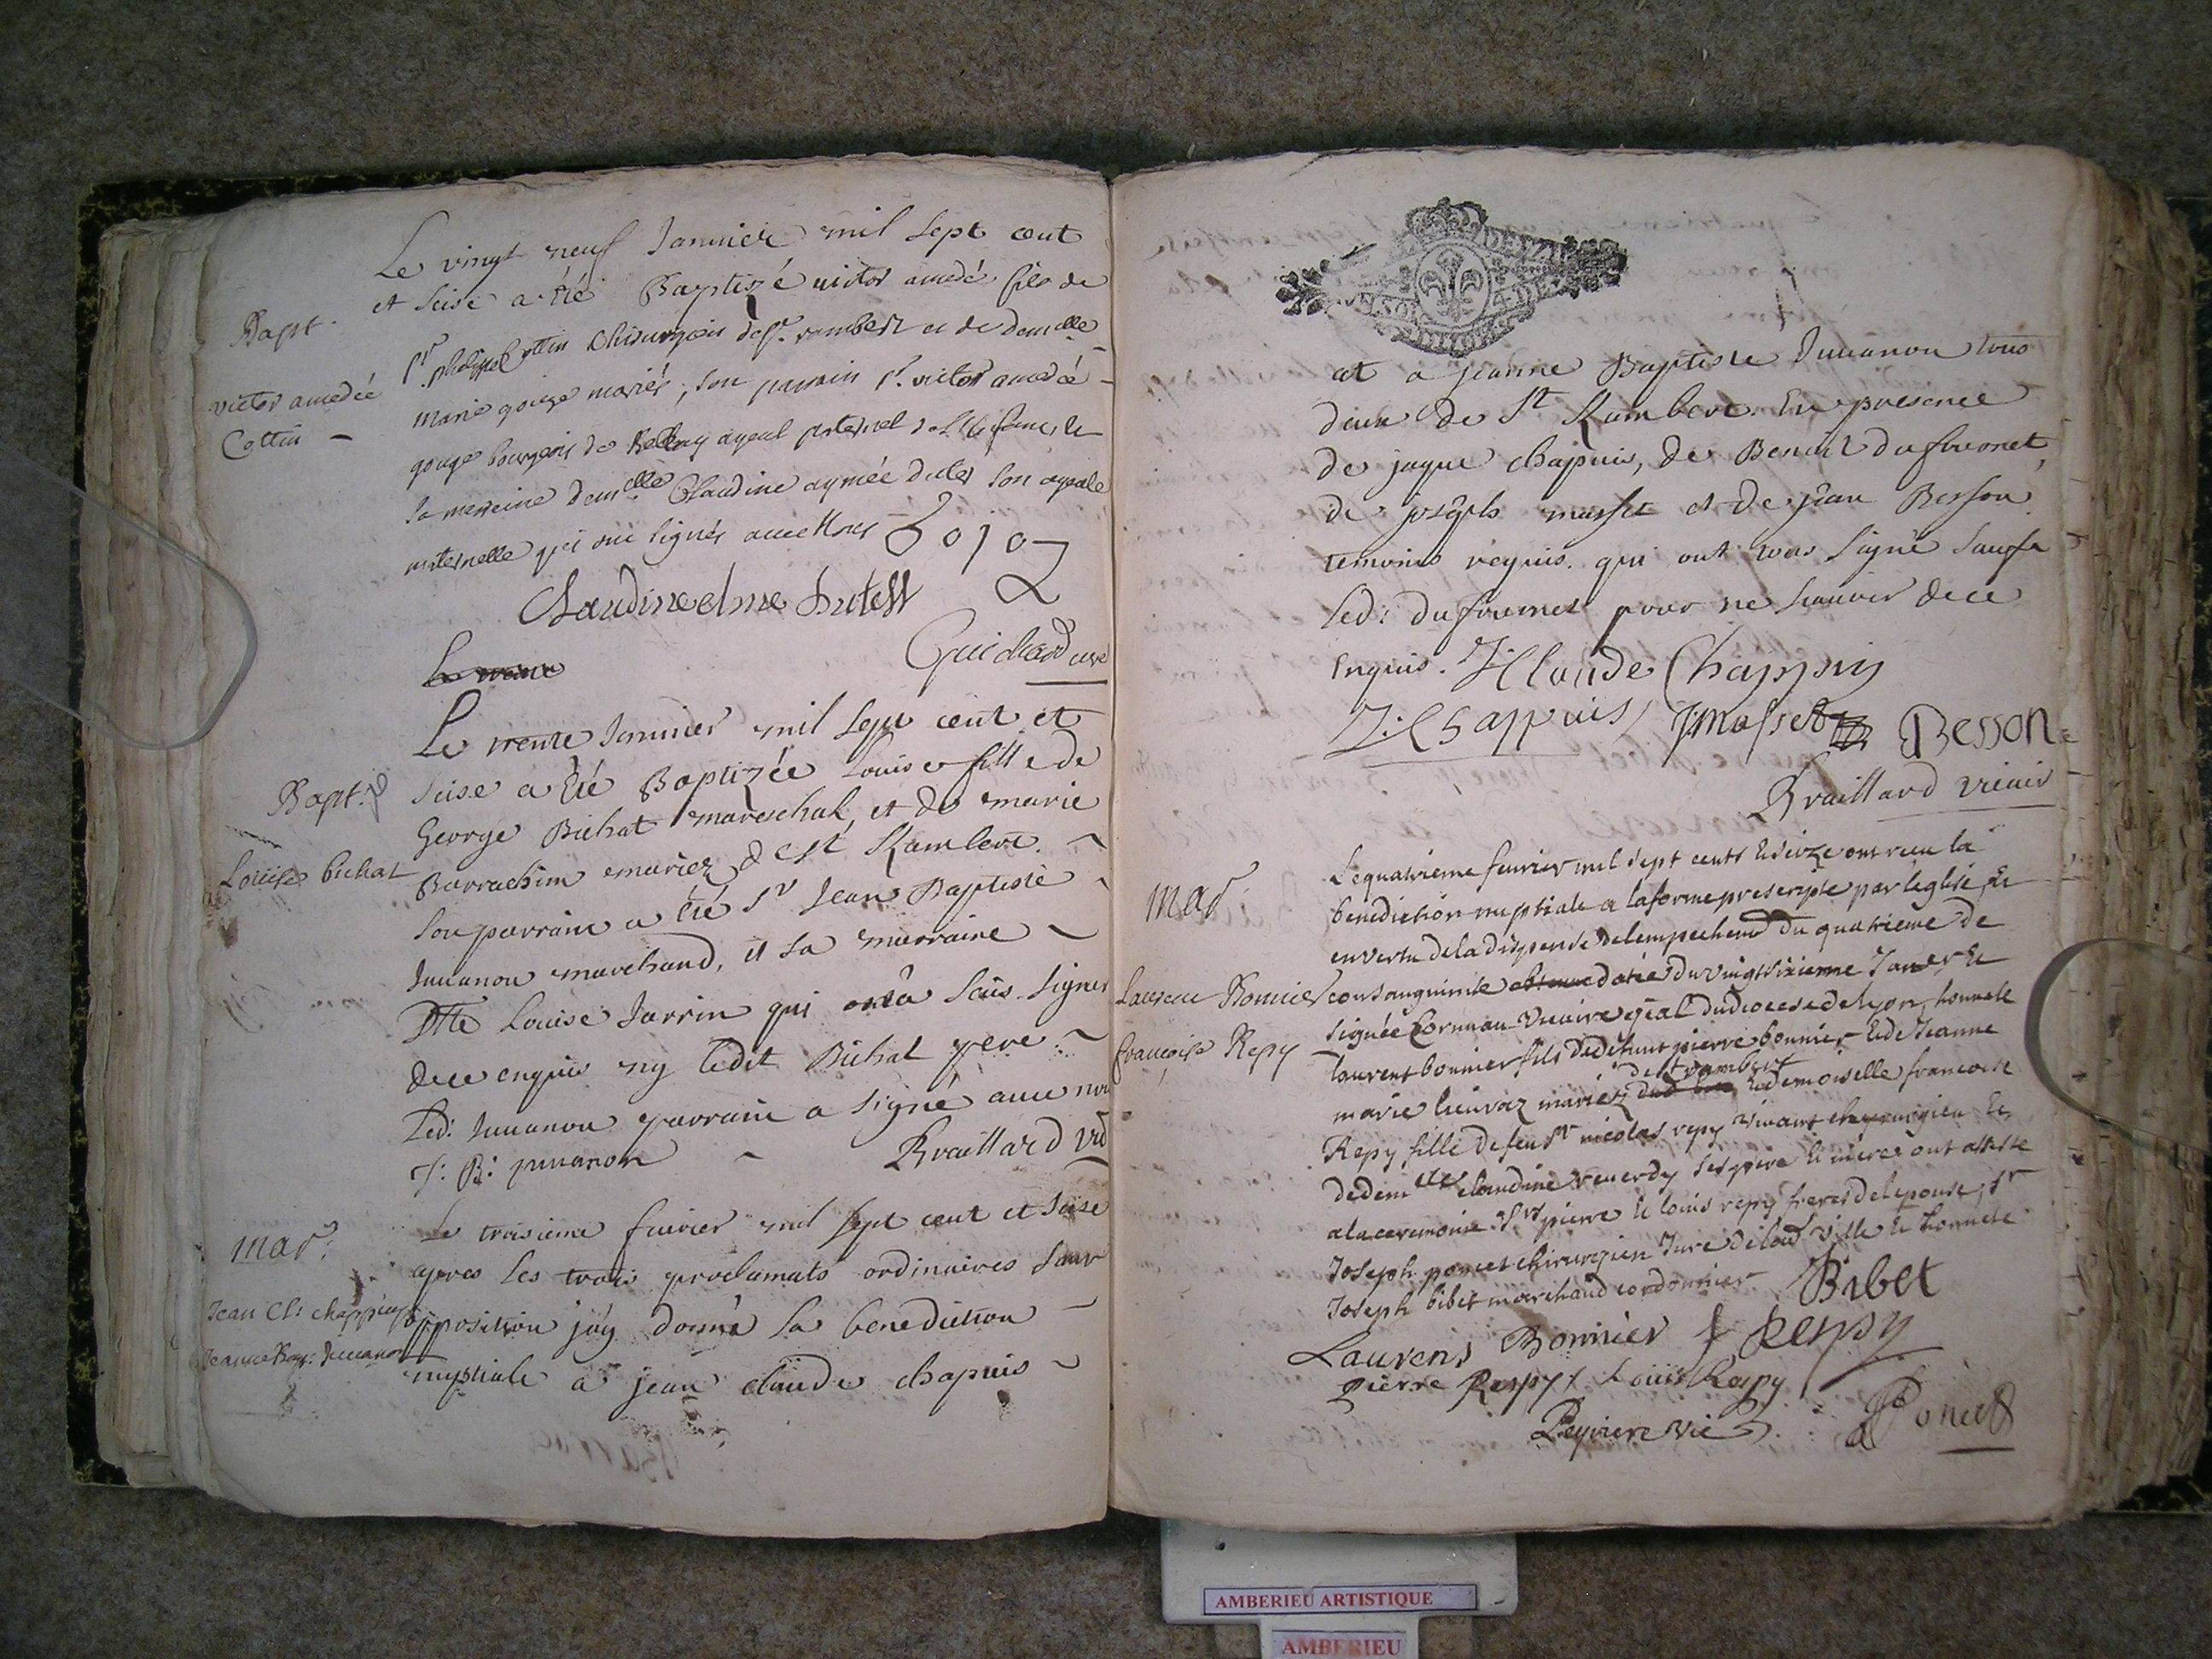 Le vingt neuf Janvier mil sept cent
et seise a été Baptizé victor amedé fils de
Bapt.
sr. philippe Cottin Chirurgien de st. rambert et de demelle
victor amedée
Cottin -
marie gouge mariés, son parrain sr. victor amedée
gouge bourgeois de Belley ayeul paternel de l'enfant, et
sa mareine demelle Claudine aymée dutel son ayeule
maternelle qui ont signés avec Nous
Claudine elme Dutell
Guichard curé
Le trente
Le trente Janvier mil sept cent et
Bapt.
seise a été Baptizée Louise fille de
George Bichat mareschal, et de marie
Louise bichat
Barrachim mariez de st Rambert.
son parrain a été Sr Jean Baptiste
Juuanon marchand, et sa marraine
Dlle Louise Jarrin qui onta sçus signer
dece enquis ny ledit Bichat pere
Led: Juuanon parrain a signé avec nou
J: B: juuanon
Braillard vic
mar:
Le troisieme fevrier mil sept cent et seise
apres les trois proclamats ordinaires sans
Jean Cl: chappuis
opposition j'ay donné la benediction
Jeanne Bap: Juuanon
nuptiale a jean claude chapuis
et a jeanne Baptiste Juuanon tous
deux de St Rambert. En presence
de jaque chapuis, de Benoit dufournet,
de joseph masset et de jean Besson
temoins requis. qui ont tous signé sauf
led: dufournet pour ne sçauoir dece
enquis. J: Claude Chappuis
J: Chappuis J masset Besson
Braillard vicair
mar
Le quatrieme feurier mil sept cents et seize ont receu la
benediction nuptiale a la forme prescripte par l'eglise, Et
en vertu de la dispense de l'empechemt du quatrieme de
Laurent Bonnier
consanguinité obtenue datée du vingt sixieme Janer et
signée Cormau Vicaire gñal du diocese de lyon, honnete
françoise Repy
laurent bonnier fils de defunt pierre bonnier Et de Jeanne
de st rambert
marie lieuraz mariez dud lieu Et demoiselle francoise
Repy fille de feu Sr nicolas repy vivant chyrurgien Et
de demlle claudine reuerdy ses pere Et mere ont assisté
a la ceremonie Srs pierre Et louis repy freres de lepouse, Sr
Joseph poncet chirurgien Juré de lad ville Et honnete
Joseph bibet marchand cordonnier Bibet
Laurens Bonnier f Repy
Pierre Respy Louis Respy
Peyriere vic Poncet
AMBERIEU ARTISTIQUE
AMBERIEU